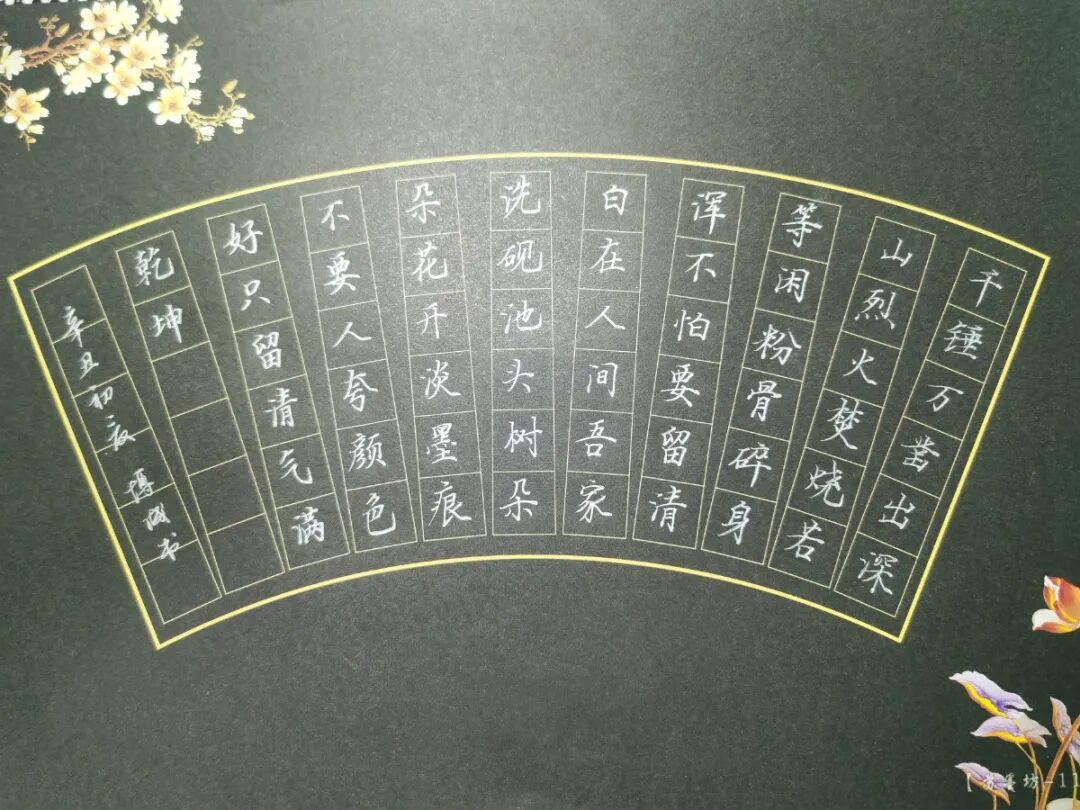 千锤万凿出深
山烈火焚烧若
等闲粉骨碎身
浑不怕要留清
白在人间吾家
洗砚池头树朵
朵花开淡墨痕
不要人夸颜色
好只留清气满
乾坤
辛丑初夏 博成书
墨坊-11